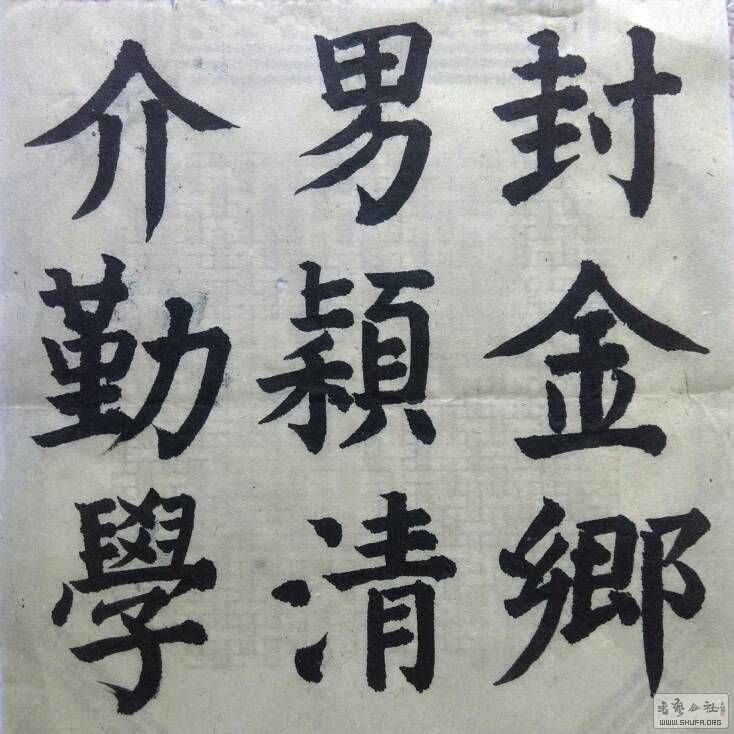 封金鄉
男穎清
介勤學
WWW.SHUFA.ORG